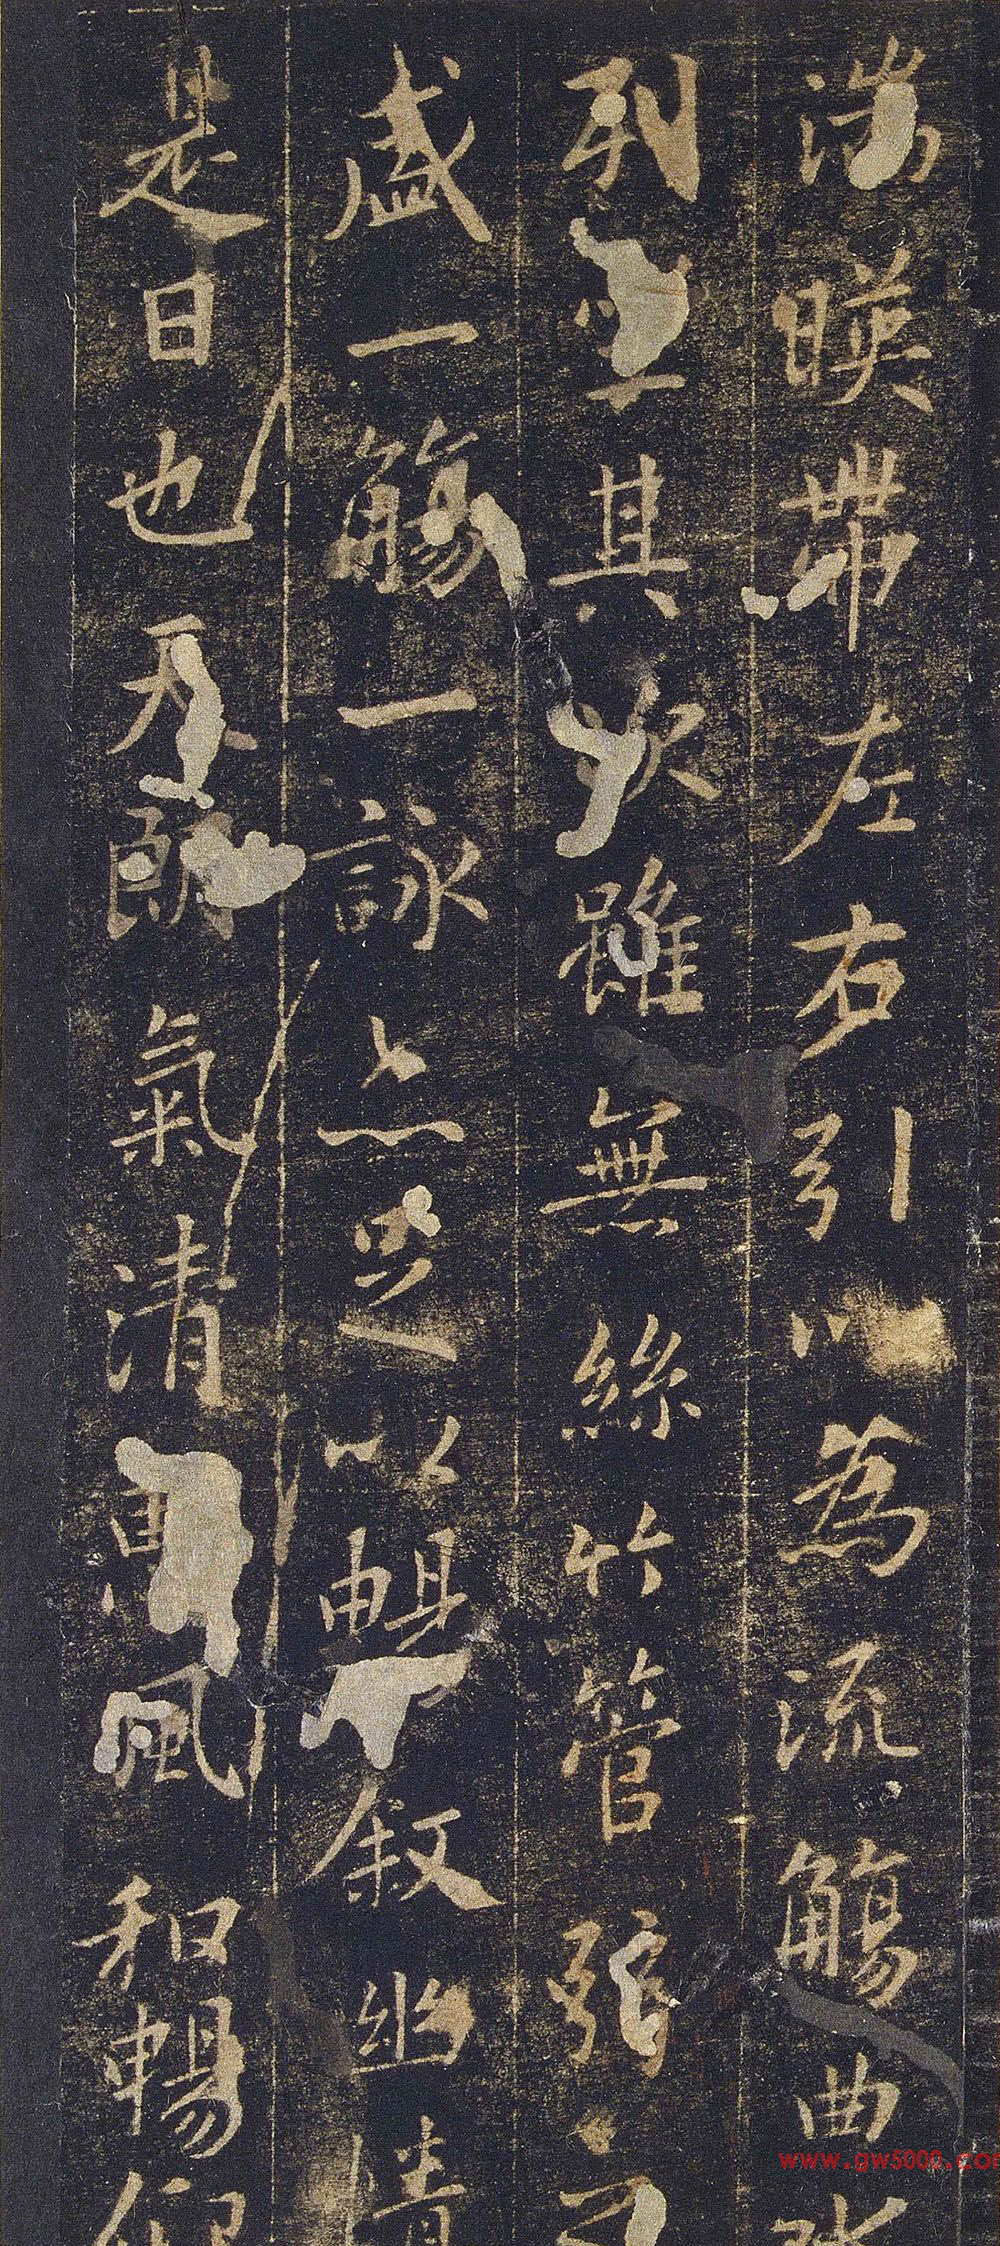 湍暎帶左右引以為流觴曲水
列坐其次雖無絲竹管弦之
盛一觴一詠亦足以暢敘幽情
是日也天朗氣清惠風和暢仰
www.gw5000.com